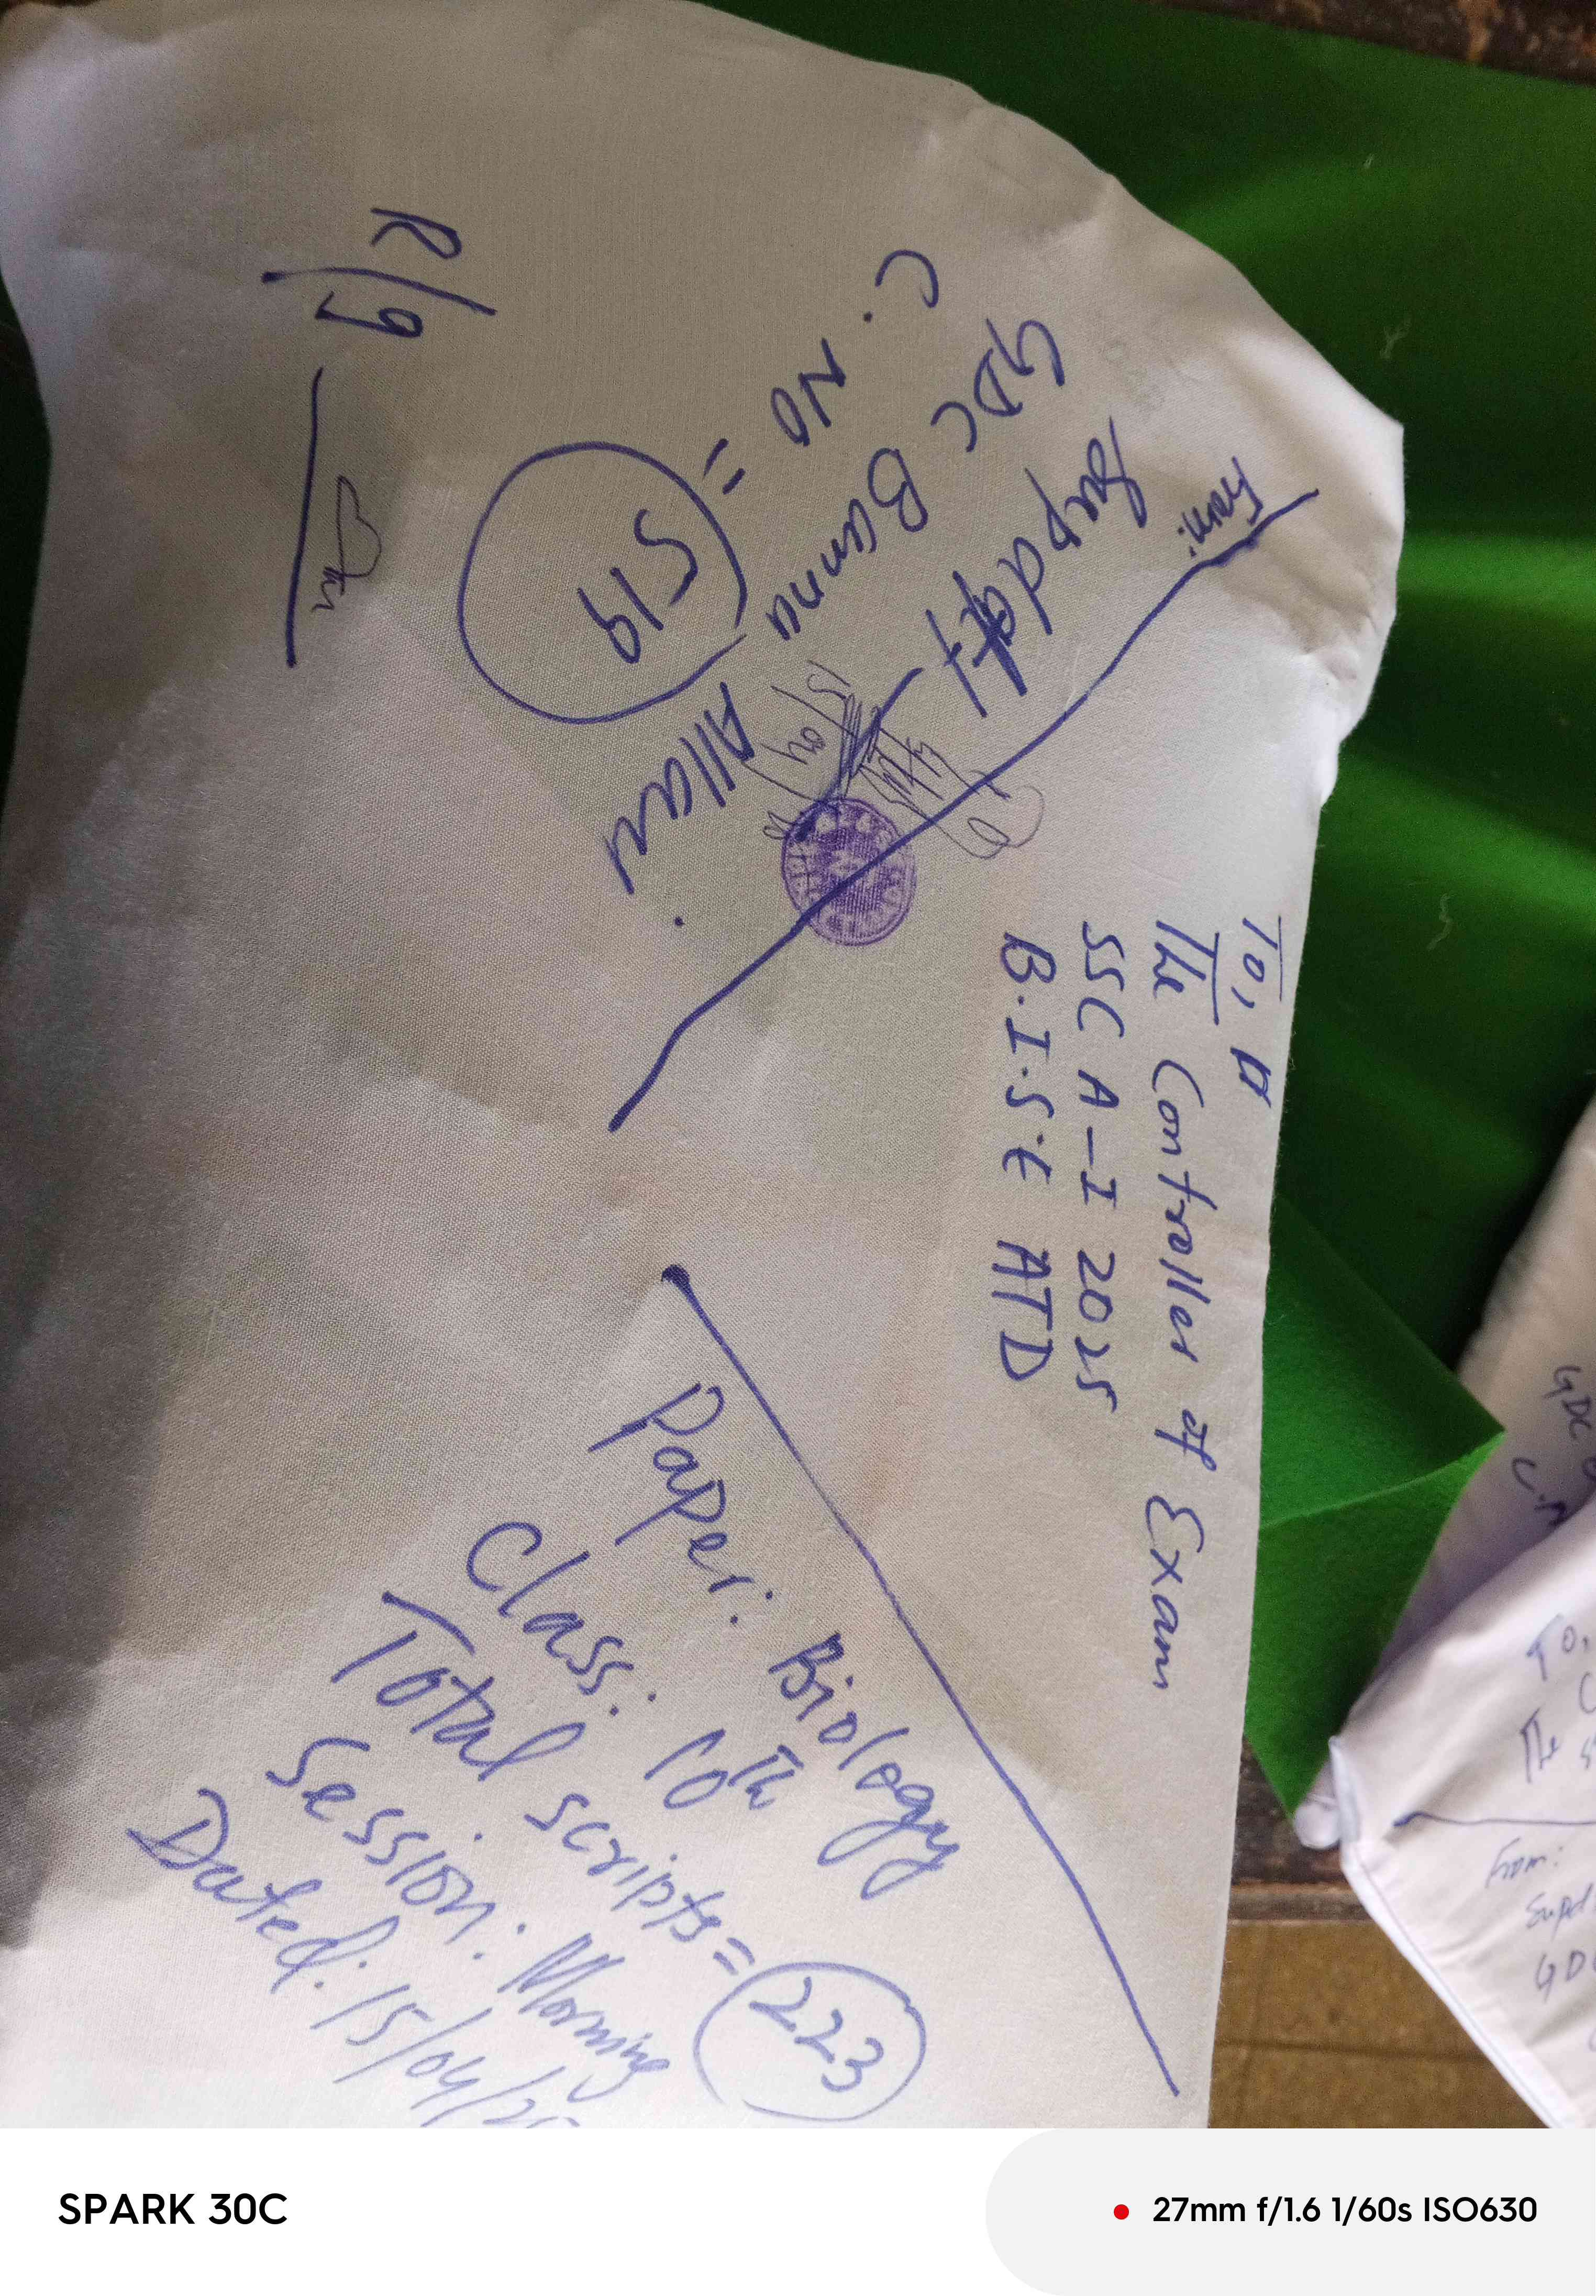 To,
The Controller of Exam
SSC A-I 2025
B.I.S.E ATD
From:
Supdtt
GDC Banna Allai.
C. No = 519
R/9
15/04/25
Paper: Biology
Class: 10th
Total scripts = 223
Session: Morning
Dated: 15/04/25
GDC
C.N
To,
The
From:
Supd
GDC
SPARK 30C
27mm f/1.6 1/60s ISO630